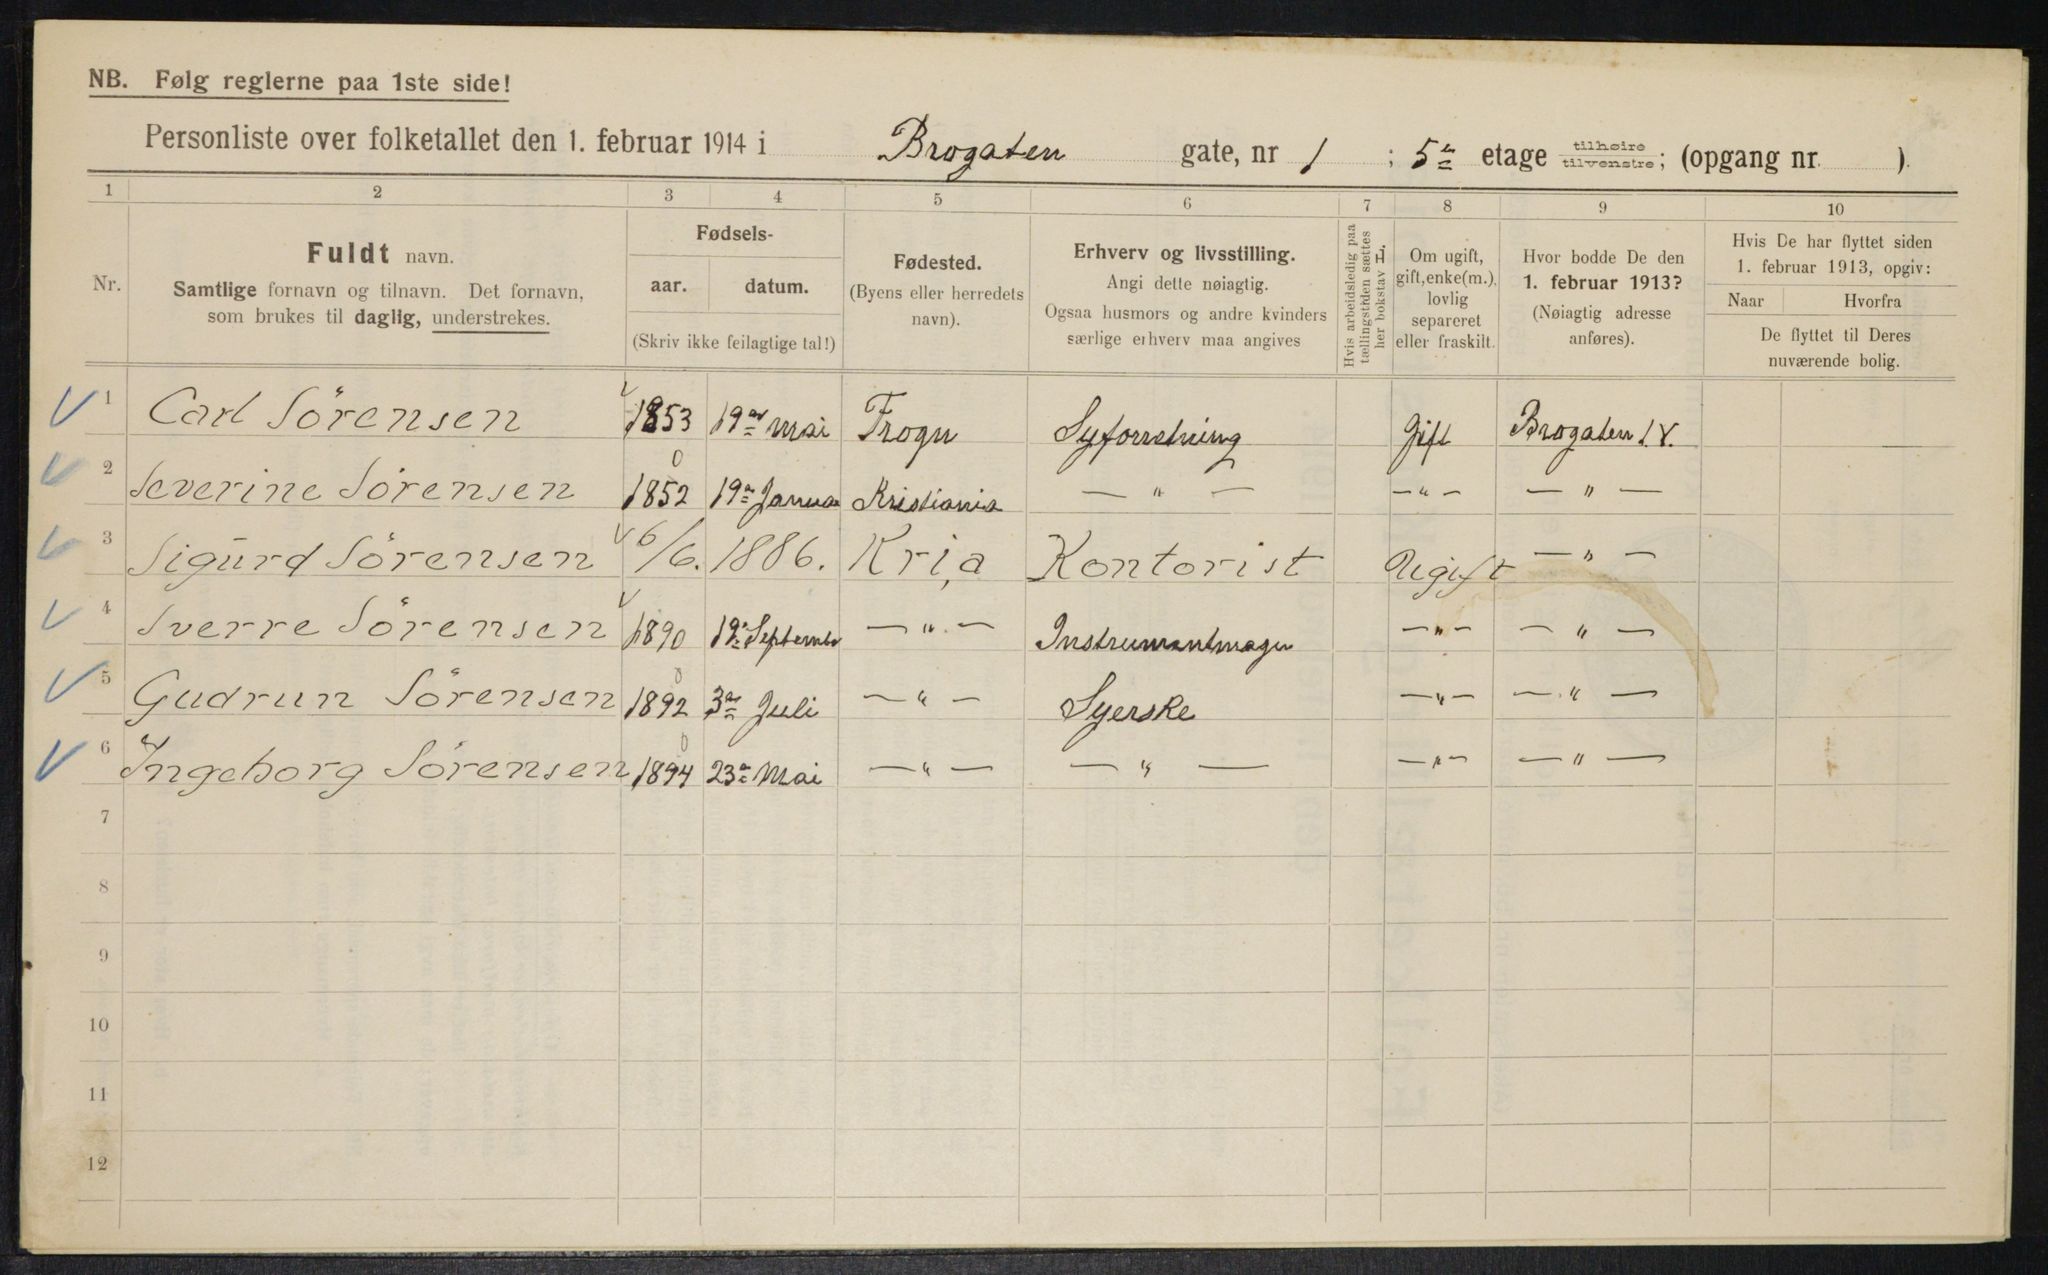 NB. Følg reglerne paa 1ste side!
Personliste over folketallet den 1. februar 1914 i Brogaten gate, nr 1 ; 5te etage tilhøire tilvenstre; (opgang nr. ).
1 2 3 4 5 6 7 8 9 10
Nr.
Fuldt navn.
Samtlige fornavn og tilnavn. Det fornavn,
som brukes til daglig, understrekes.
Fødsels-
aar. datum.
(Skriv ikke feilagtige tal!)
Fødested.
(Byens eller herredets
navn).
Erhverv og livsstilling.
Angi dette nøiagtig.
Ogsaa husmors og andre kvinders
særlige erhverv maa angives
Hvis arbeidsledig paa
tællingstiden sættes
her bokstav L.
Om ugift,
gift, enke(m.),
lovlig
separeret
eller fraskilt.
Hvor bodde De den
1. februar 1913?
(Nøiagtig adresse
anføres).
Hvis De har flyttet siden
1. februar 1913, opgiv:
Naar Hvorfra
De flyttet til Deres
nuværende bolig.
1 Carl Sörensen 1853 19de Mai Frogn Syforretning Gift Brogaten 1.V.
2 Severine Sörensen 1852 19de Januar Kristiania — " — — " — — " —
3 Sigurd Sörensen 6/6. 1886. Kria Kontorist Ugift — " —
4 Sverre Sörensen 1890 19de September — " — Instrumentmager — " — — " —
5 Gudrun Sörensen 1892 3de Juli — " — Syerske — " — — " —
6 Ingeborg Sörensen 1894 23de Mai — " — — " — — " — — " —
7
8
9
10
11
12